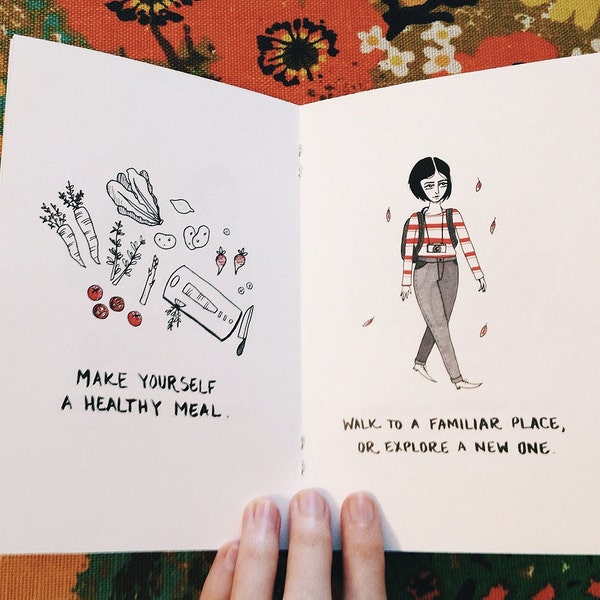 MAKE YOURSELF
A HEALTHY MEAL.
WALK TO A FAMILIAR PLACE,
OR EXPLORE A NEW ONE.